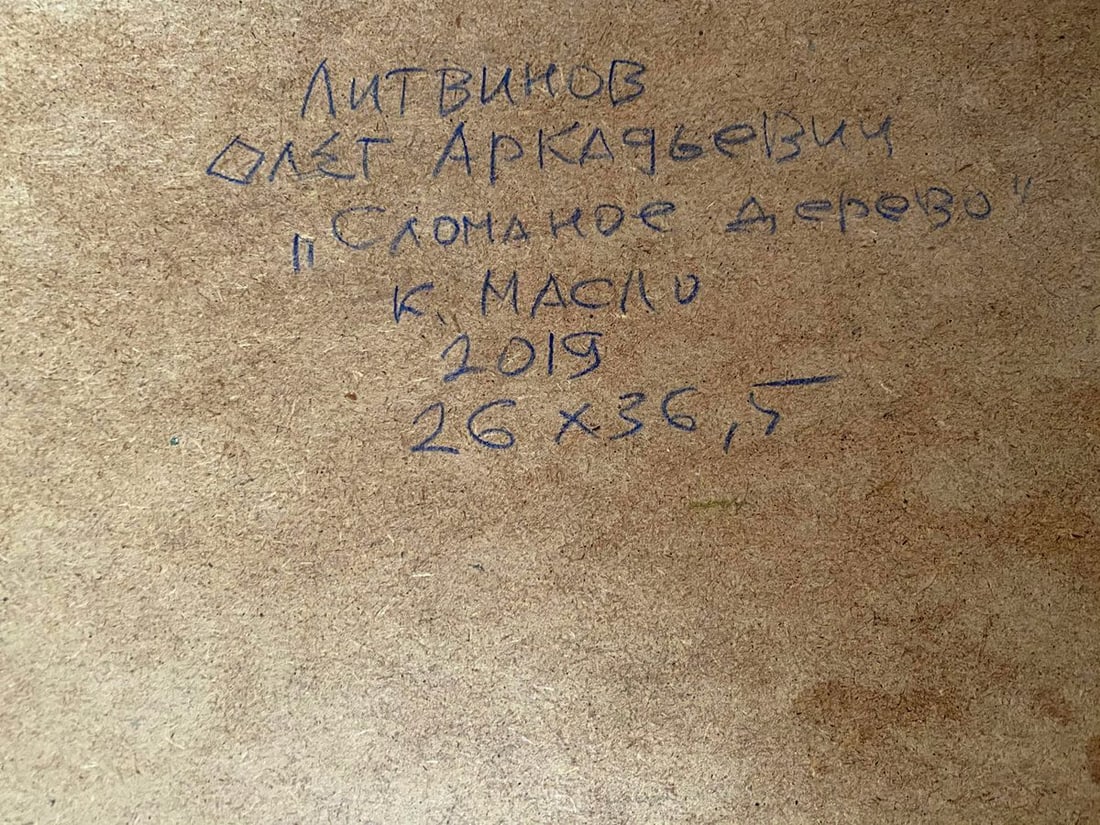 Литвинов
Олег Аркадьевич
„Сломаное дерево"
к. масло
2019
26 х 36,5